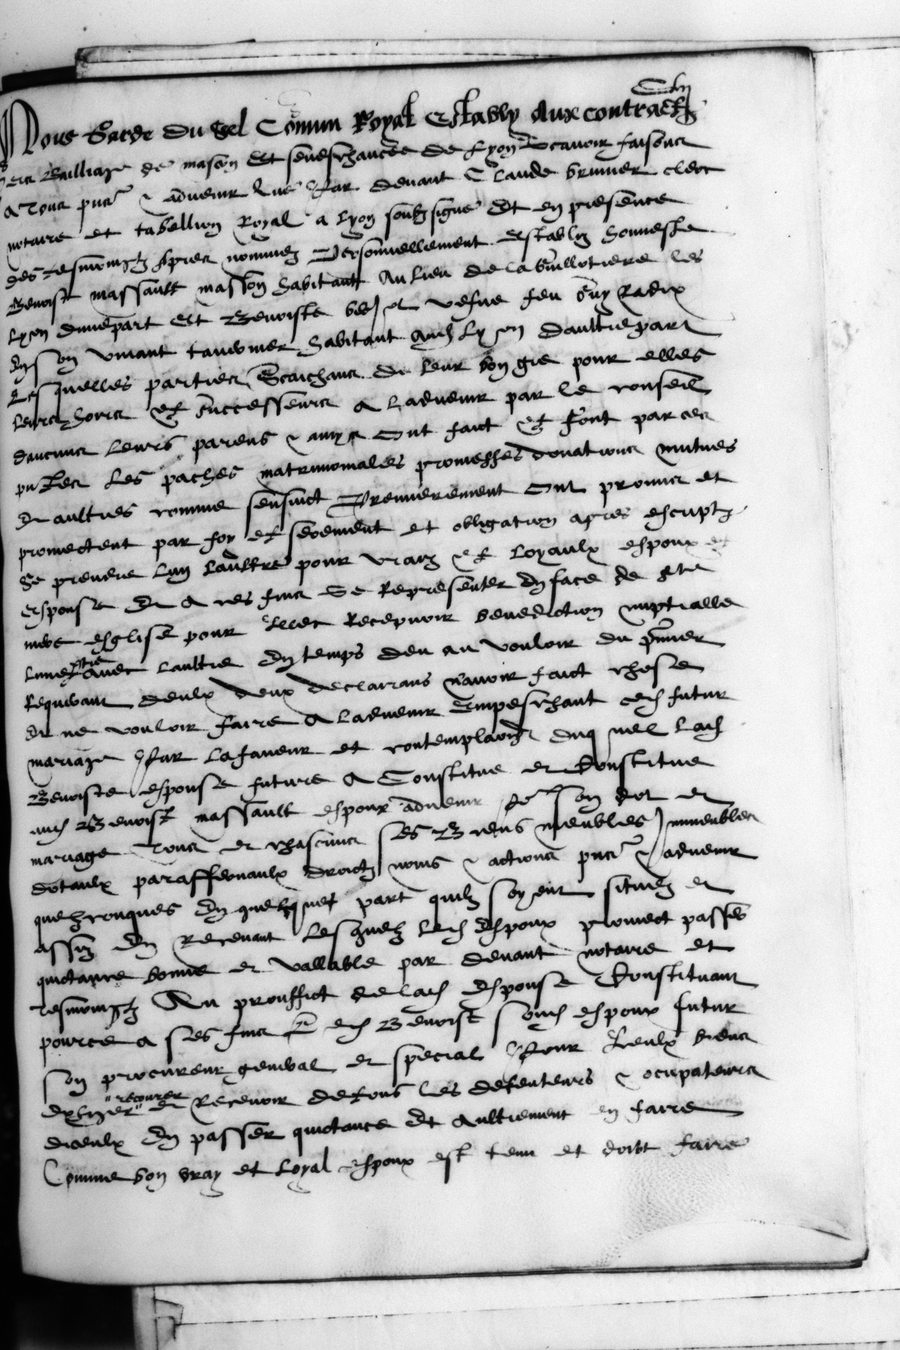 Nous Garde du Seel Commun Royal Estably aux contractz
es Bailliage de mascon et seneschaucee de Lyon Scavoir faisons
A tous pns et advenir que par devant Claude brunier clerc
notaire et tabellion Royal a Lyon soubsigne Et en presence
des tesmoingtz Apres nommez Personnellement establyz honneste
Benoist massault masson habitant Au lieu de la Guillotiere les
Lyon dune part Et Benoiste vefve feu Guy Radix
En son vivant habitant Aud Lyon daultre part
Lesquelles parties Scaichans de leur bon gre pour elles
leurs hoirs et successeurs A Ladvenir par le conseil
daucuns leurs parens & amys Ont faict et font par ces
pntes Les paches matrimoniales promesses donations mutues
Et aultres comme sensuict Premierement Ont promis et
promectent par foy et serement et obligation apres escriptz
Se prendre Lun Laultre pour vrayz et Loyaulx espoux et
espouse Et A ces fins Se Representer En face de ste
mere esglise pour Illec Recepvoir benediction nuptialle
Lune avec laultre En temps deu au vouloir du premier
Requerant deulx deux declairans navoir faict chose
Et ne vouloir faire A Ladvenir Empeschant led futur
mariage Pour La faveur et contemplaon duquel Lad
Benoiste espouse future A Constitue et Constitue
aud Benoist massault espoux advenir pour son dot et
mariage Tous et chascuns ses Biens meubles immeubles
dotaulx paraffernaulx droictz noms & actions pns & advenir
quelzconques En quelque part quilz soyent situez et
assiz En Recevant Lesquelz Led Espoux promect passer
quictance bonne et vallable par devant notaire et
tesmoingtz Au prouffict de lad Espouse Constituant
pource a ses fins led Benoist sond espoux futur
son procureur general et special Pour Iceulx biens
Exhiger recouvrer et Recevoir de tous les detenteurs & occupateurs
diceulx En passer quictance Et Aultrement en faire
Comme bon vray et Loyal espoux est tenu et doibt faire